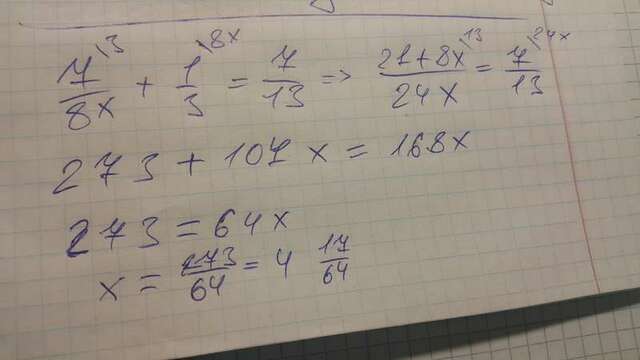 7/8x \3 + 1/3 \8x = 7/13 => 21+8x/24x \13 = 7/13 \24x
273 + 104x = 168x
273 = 64x
x = 273/64 = 4 17/64